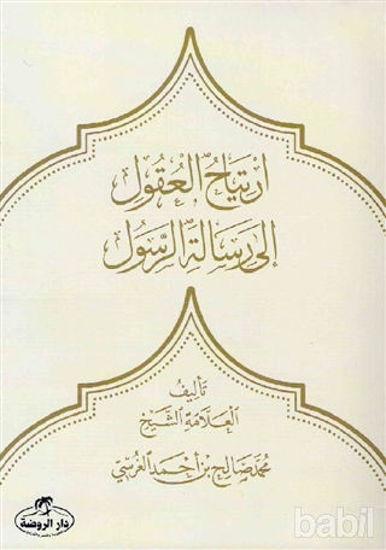 ارتياح العقول
إلى رسالة الرسول
تأليف
العلامة الشيخ
محمد صالح بن أحمد الغرسي
دار الروضة
babil